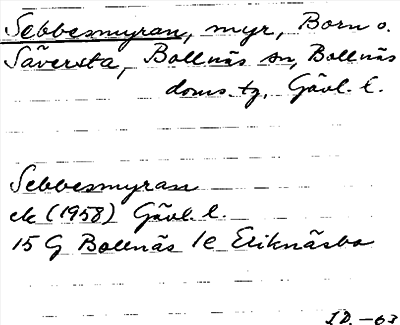 Sebbesmyran, myr, Born o.
Säversta, Bollnäs sn, Bollnäs
doms. tg, Gävl. l.
Sebbesmyran
ek (1958) Gävl. l.
15 G Bollnäs 1e Eriknäsbo
I.D. -63